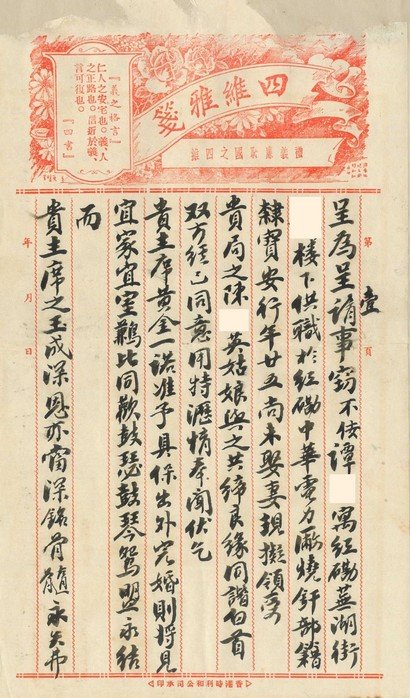 四維雅箋
禮義廉恥國之四維
『義之格言』
仁人之安宅也。義、人
之正路也。信近於義、
言可復也。
『四書』
第壹頁
呈為呈請事窃不佞譚 寓紅磡蕪湖街
楼下供職於紅磡中華電力廠燒釬部籍
隸寶安行年廿五尚未娶妻現擬領受
貴局之陳 英姑娘與之共締良緣同諧白首
双方经已同意用特瀝情奉聞伏乞
貴主席黃金一諾准予具保出外完婚則將見
宜家宜室鶼比同歡鼓瑟鼓琴鴛盟永結
而
貴主席之玉成深恩亦當深銘骨髓永矢弗
年月日
香港時利和公司承印